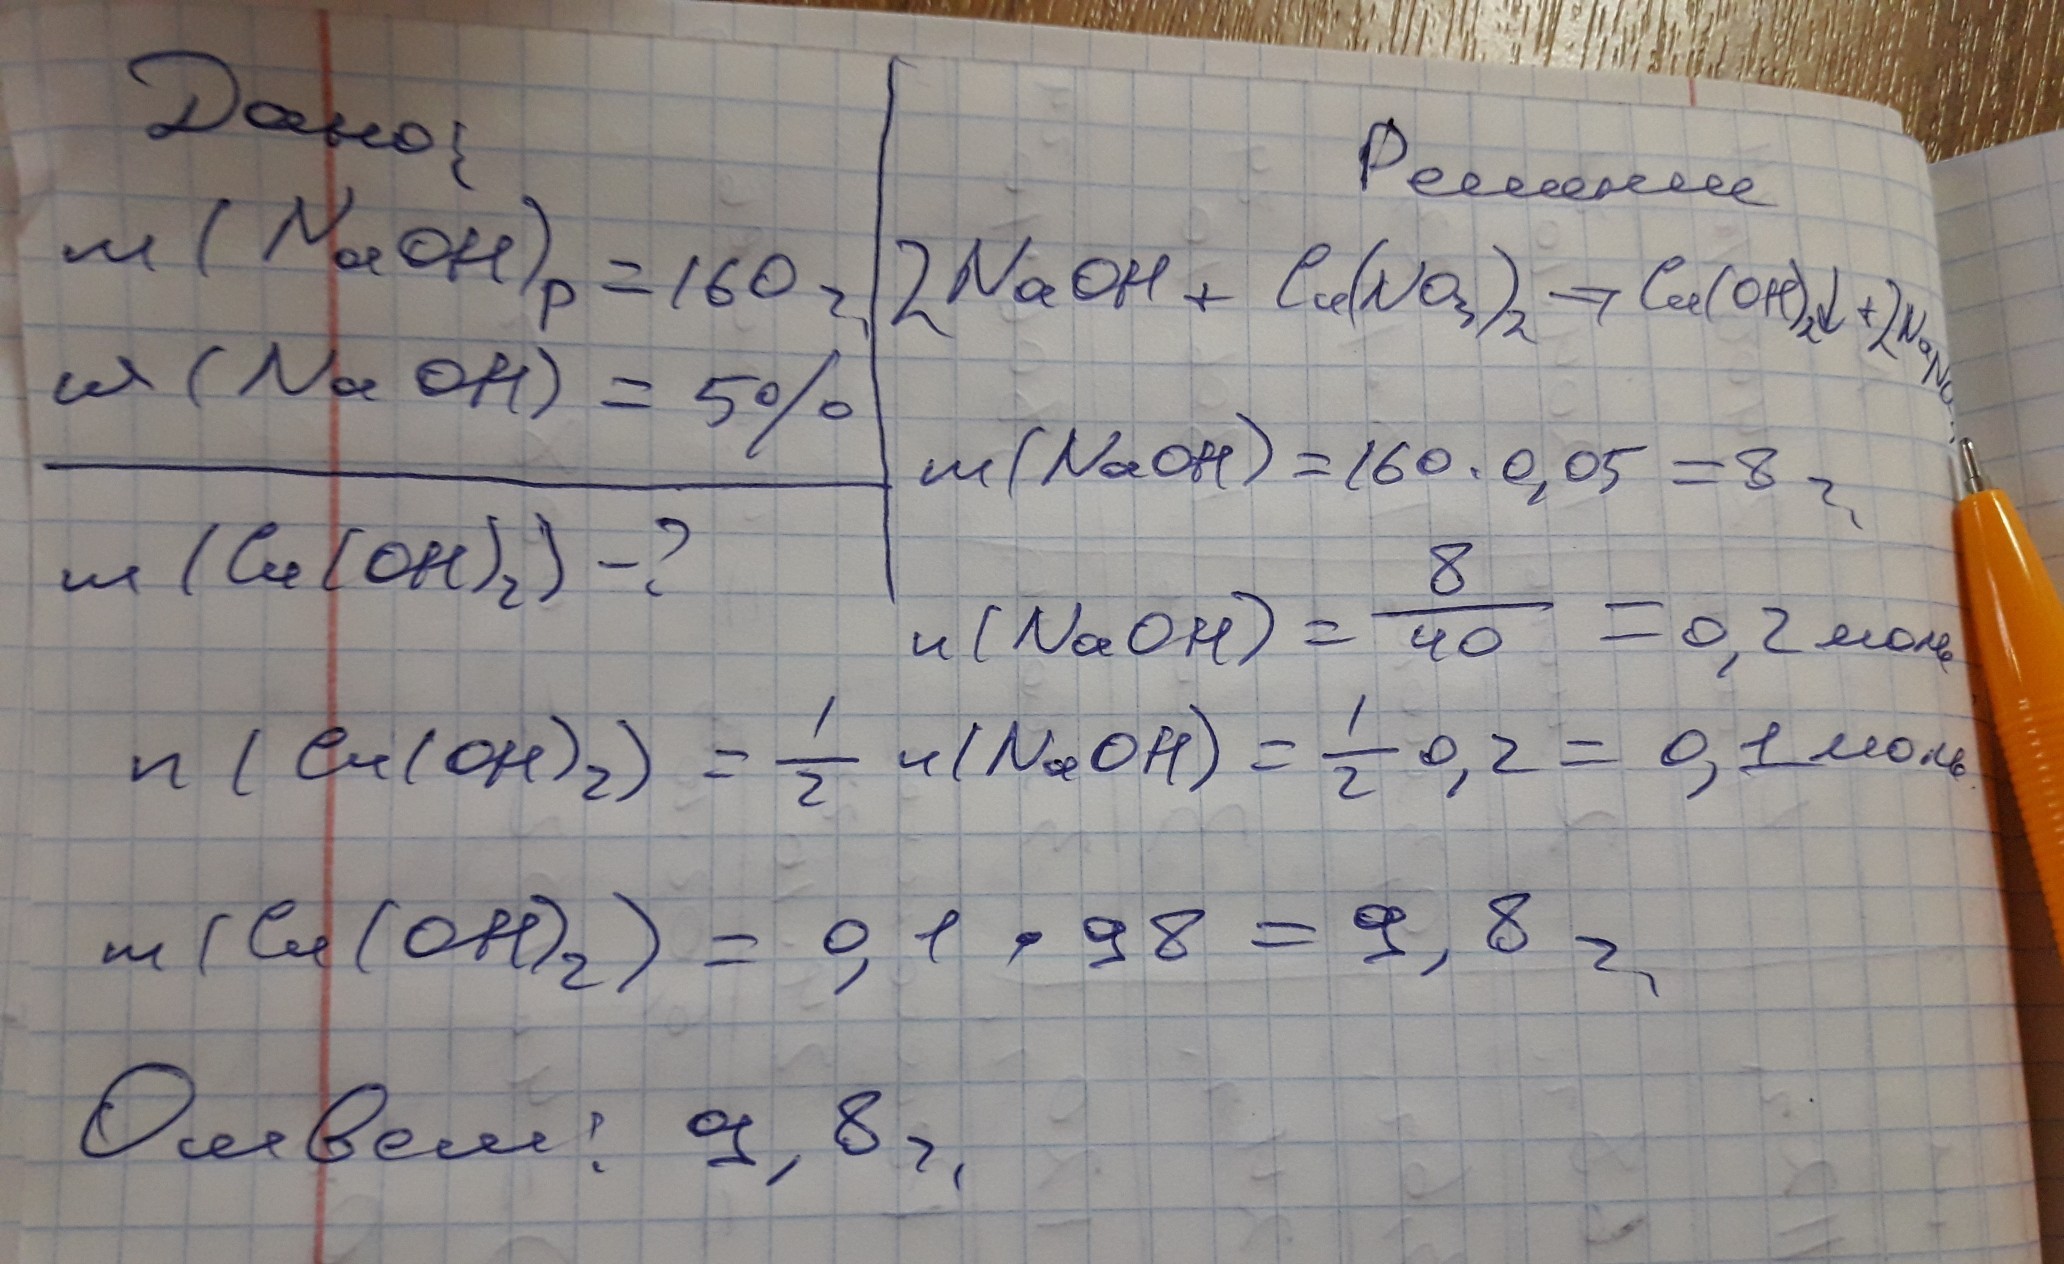 Дано:
m(NaOH)р = 160 г,
w(NaOH) = 5%
m(Cu(OH)₂) - ?
Решение
2NaOH + Cu(NO₃)₂ → Cu(OH)₂↓ + 2NaNO₃
m(NaOH) = 160 · 0,05 = 8 г,
n(NaOH) = 8/40 = 0,2 моль
n(Cu(OH)₂) = 1/2 n(NaOH) = 1/2 0,2 = 0,1 моль
m(Cu(OH)₂) = 0,1 · 98 = 9,8 г,
Ответ: 9,8 г,